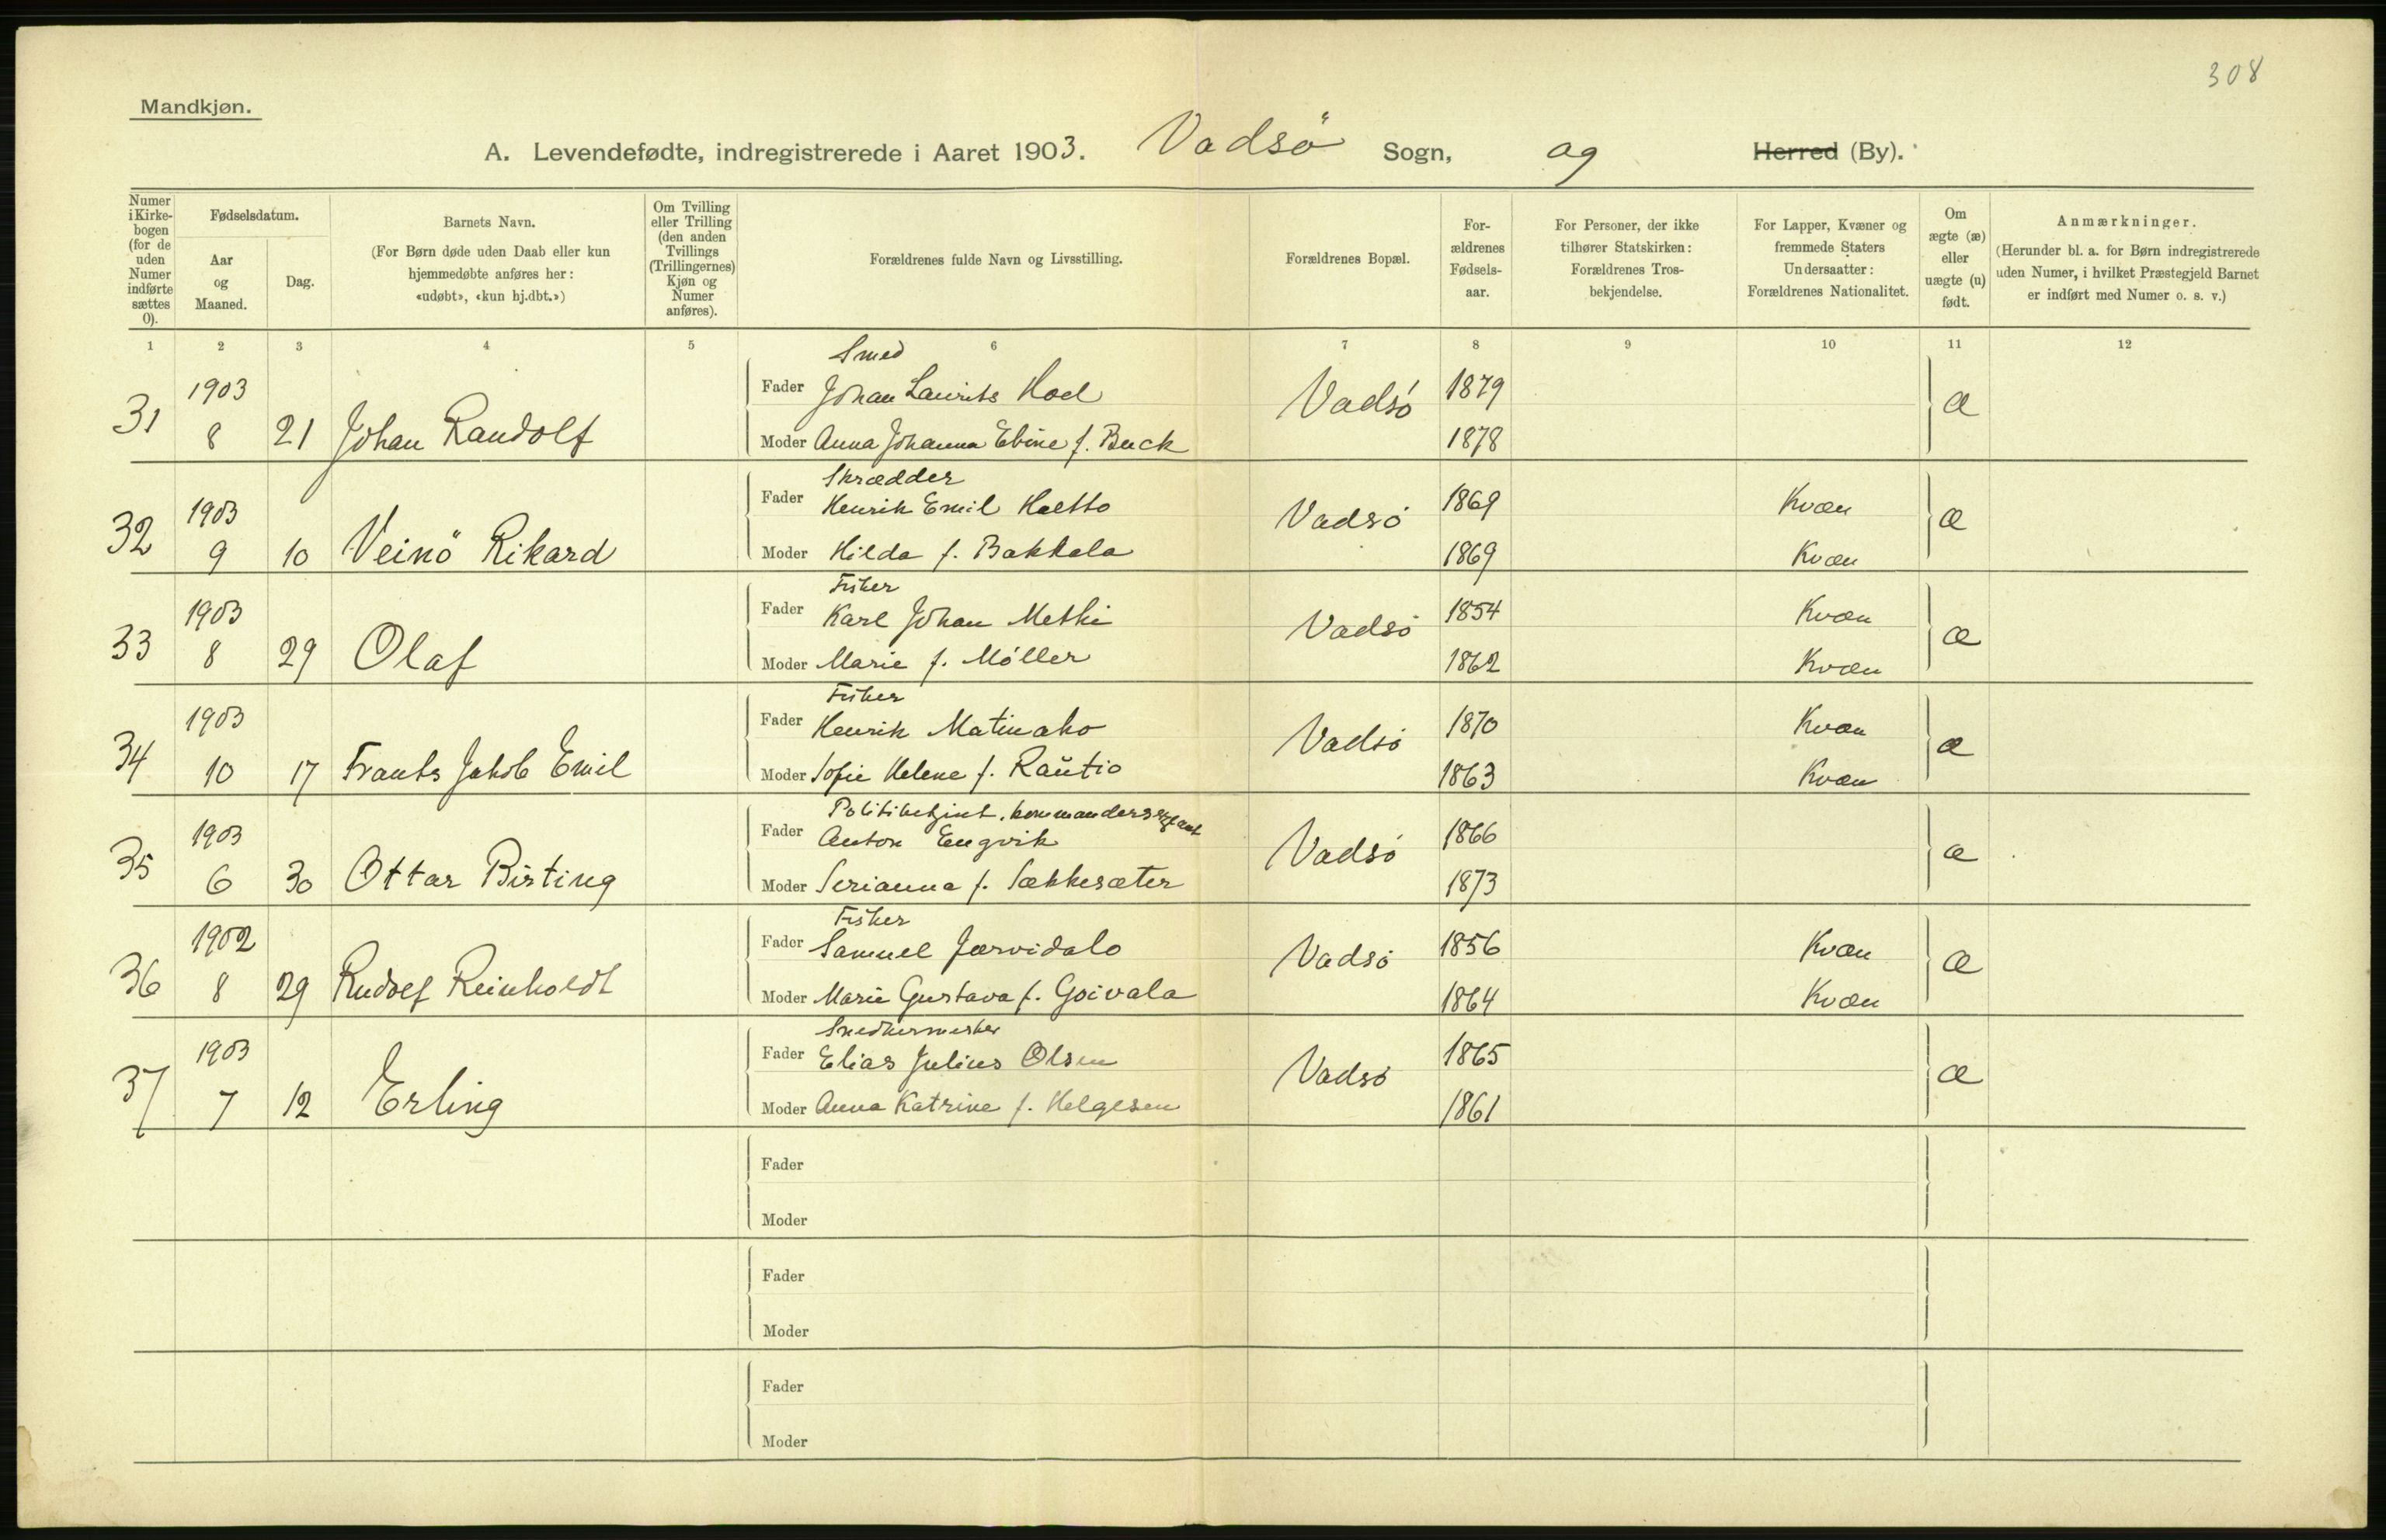 308
Mandkjøn.
A. Levendefødte, indregistrerede i Aaret 1903. Vadsö Sogn, og Herred (By).
Numer i Kirke-bogen (for de uden Numer indførte sættes 0).
Fødselsdatum.
Aar og Maaned.
Dag.
Barnets Navn.
(For Børn døde uden Daab eller kun hjemmedøbte anføres her: «udøbt», «kun hj.dbt.»)
Om Tvilling eller Trilling (den anden Tvillings (Trillingernes) Kjøn og Numer anføres).
Forældrenes fulde Navn og Livsstilling.
Forældrenes Bopæl.
For-ældrenes Fødsels-aar.
For Personer, der ikke tilhører Statskirken: Forældrenes Tros-bekjendelse.
For Lapper, Kvæner og fremmede Staters Undersaatter: Forældrenes Nationalitet.
Om ægte (æ) eller uægte (u) født.
Anmærkninger.
(Herunder bl. a. for Børn indregistrerede uden Numer, i hvilket Præstegjeld Barnet er indført med Numer o. s. v.)
1 2 3 4 5 6 7 8 9 10 11 12
Smed
31 1903 8 21 Johan Randolf Fader Johan Laurits Hoel Vadsö 1879 æ
Moder Anna Johanna Ebine f. Buck 1878
Skrædder
32 1903 9 10 Veinö Rikard Fader Henrik Emil Haetto Vadsö 1869 Kvæn æ
Moder Hilda f. Bakkala 1869 Kvæn
Fisker
33 1903 8 29 Olaf Fader Karl Johan Methi Vadsö 1854 Kvæn æ
Moder Marie f. Möller 1862 Kvæn
Fisker
34 1903 10 17 Frants Jakob Emil Fader Henrik Matinaho Vadsö 1870 Kvæn æ
Moder Sofie Helene f. Raŭtio 1863 Kvæn
Politibetjent, kommandersergeant
35 1903 6 30 Ottar Birting Fader Anton Engvik Vadsö 1866 æ
Moder Serianna f. Sækkesæter 1873
Fisker
36 1902 8 29 Rudolf Reinholdt Fader Samuel Jærvidalo Vadsö 1856 Kvæn æ
Moder Marie Gustava f. Goivala 1864 Kvæn
Snedkermester
37 1903 7 12 Erling Fader Elias Julius Olsen Vadsö 1865 æ
Moder Anna Katrine f. Helgesen 1861
Fader
Moder
Fader
Moder
Fader
Moder